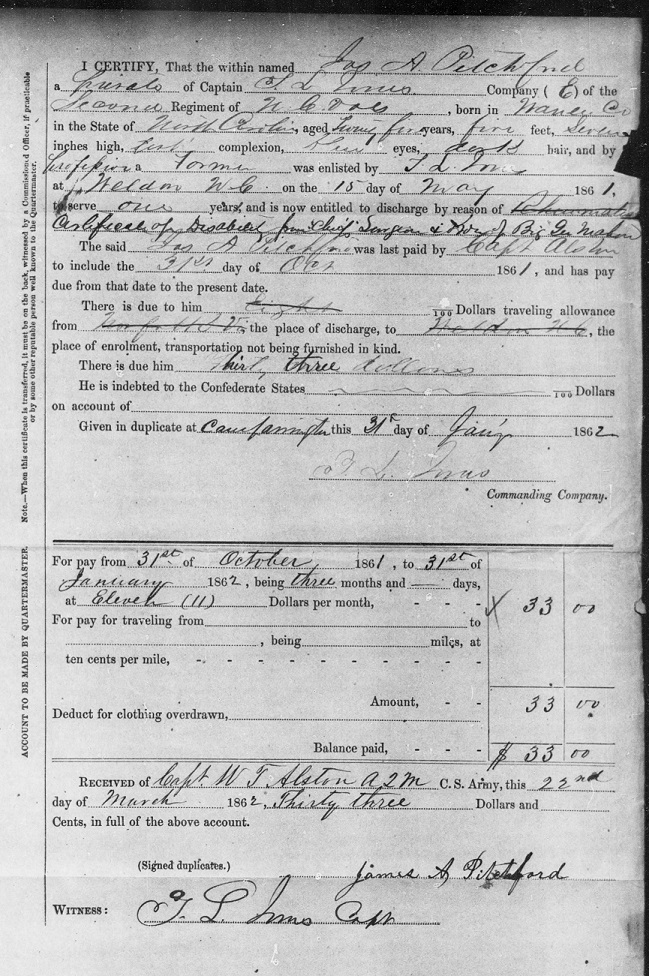 I CERTIFY, That the within named Jas A Pitchford
a Private of Captain T. L. Jones Company ( E ) of the
Second Regiment of N. C. Vols , born in Co
in the State of North Carolina aged years, five feet, seven
inches high, complexion, blue eyes, dark hair, and by
profession a Farmer was enlisted by T. L. Jones
at Weldon N. C. on the 15 day of May 1861,
to serve one years, and is now entitled to discharge by reason of
Certificate of Disability from Chief Surgeon & order of Brig Gen
The said Jas A Pitchford was last paid by Capt Alston
to include the 31st day of Oct 1861, and has pay
due from that date to the present date.
There is due to him Eight 100 Dollars traveling allowance
from Norfolk Va, the place of discharge, to Weldon N. C, the
place of enrolment, transportation not being furnished in kind.
There is due him Thirty three dollars
He is indebted to the Confederate States 100 Dollars
on account of
Given in duplicate at this 31st day of Jan'y 1862
T. L. Jones
Commanding Company.
For pay from 31st of October 1861, to 31st of
January 1862, being three months and — days,
at Eleven (11) Dollars per month, - - - X 33 00
For pay for traveling from to
, being miles, at
ten cents per mile, - - - - - - - - -
Amount, - - 33 00
Deduct for clothing overdrawn,
Balance paid, - - - $ 33 00
RECEIVED of Capt W T Alston A Q M C. S. Army, this 22nd
day of March 1862, Thirty three Dollars and
Cents, in full of the above account.
(Signed duplicates.) James A Pitchford
WITNESS: T. L. Jones Capt
Note.—When this certificate is transferred, it must be on the back, witnessed by a Commissioned Officer, if practicable
or by some other reputable person well known to the Quartermaster.
ACCOUNT TO BE MADE BY QUARTERMASTER.